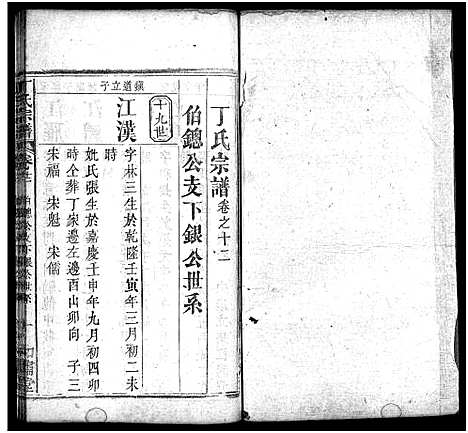 丁氏宗譜卷之十二
伯鏓公支下銀公世系
十九世
鎮道立子
江漢
字林三生於乾隆壬寅年三月初二未
時
妣氏張生於嘉慶壬申年九月初四卯
時仝葬丁家邊左邊酉山卯向 子三
宋福 宋魁 宋儒
丁氏宗譜